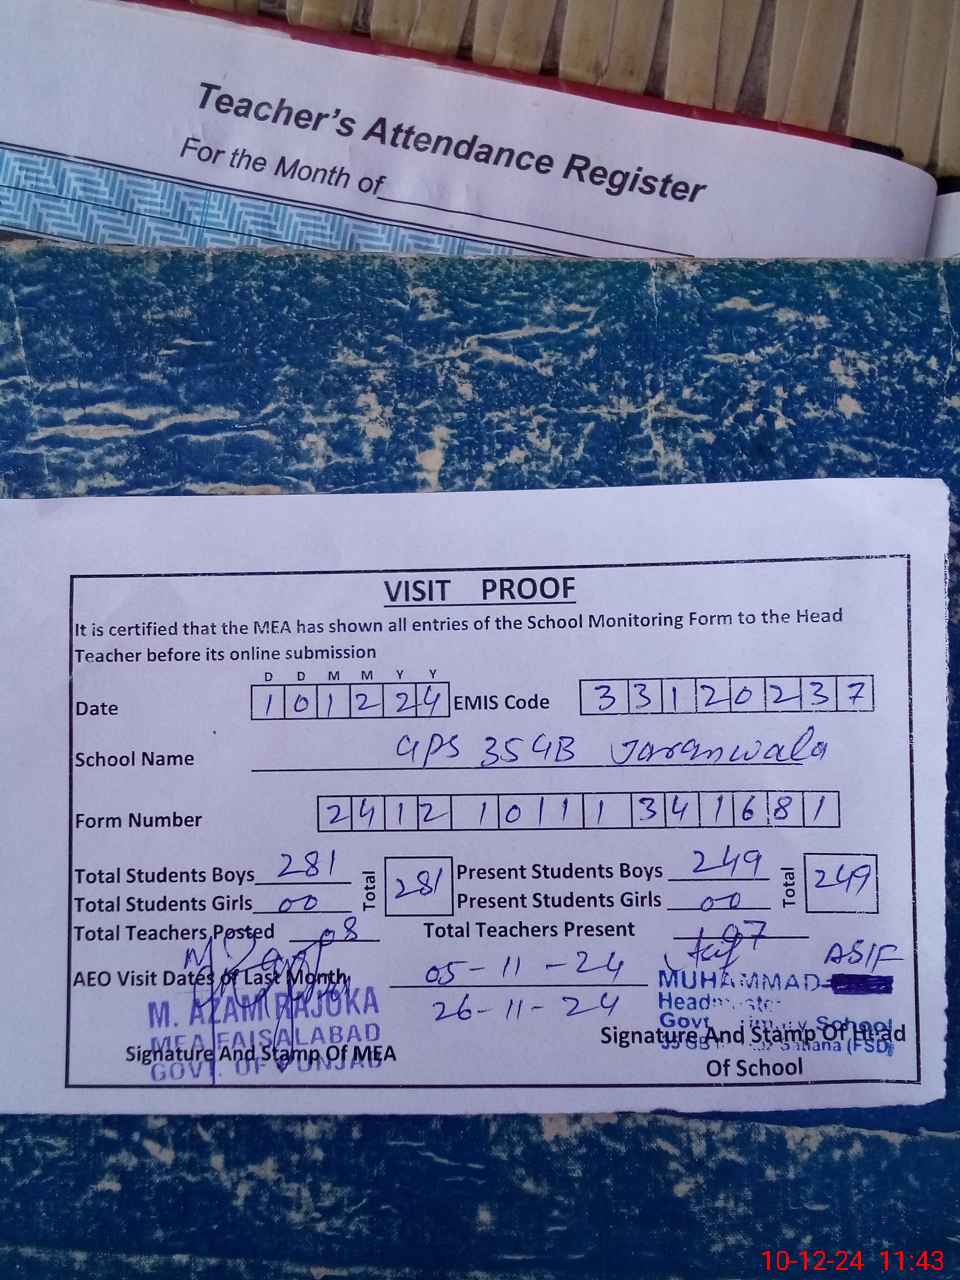 Teacher's Attendance Register
For the Month of
VISIT PROOF
It is certified that the MEA has shown all entries of the School Monitoring Form to the Head
Teacher before its online submission
D D M M Y Y
Date 1 0 1 2 2 4 EMIS Code 3 3 1 2 0 2 3 7
School Name GPS 35 GB Jaranwala
Form Number 2 4 1 2 1 0 1 1 1 3 4 1 6 8 1
Total Students Boys 281 Total 281 Present Students Boys 249 Total 249
Total Students Girls 00 Present Students Girls 00
Total Teachers Posted 08 Total Teachers Present 07
ASIF
AEO Visit Dates of Last Month 05-11-24
26-11-24
MUHAMMAD
Govt School
(FSD)
M. AZAM RAJOKA
MEA FAISALABAD
GOVT. OF PUNJAB
Signature And Stamp Of MEA
Signature And Stamp Of Head
Of School
10-12-24 11:43